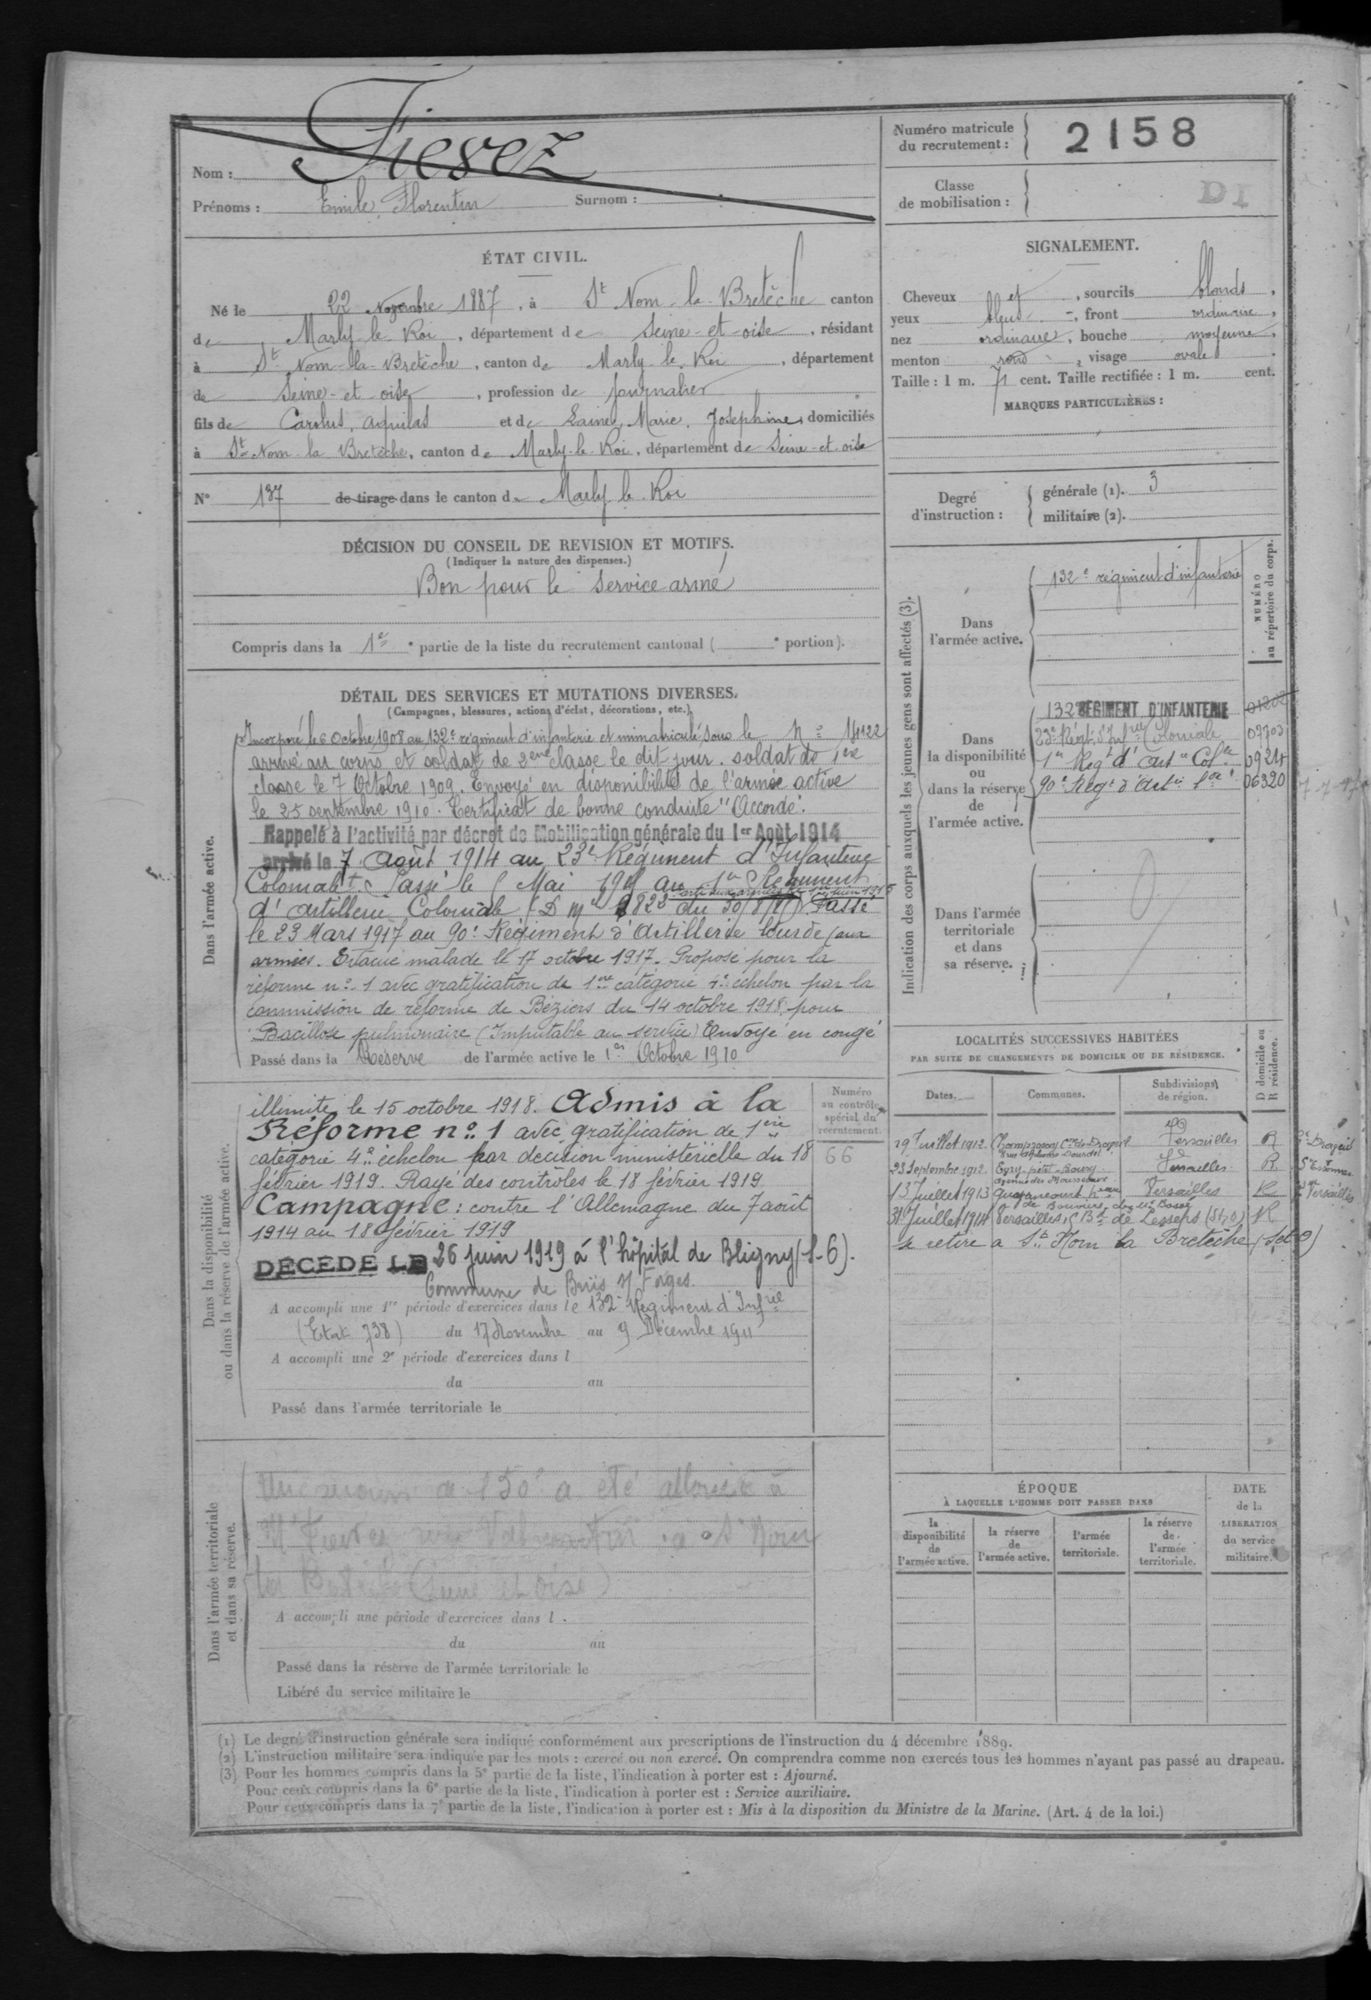 Nom : Fievez
Prénoms : Emile, Florentin Surnom :
Numéro matricule du recrutement : 2158
Classe de mobilisation :
ÉTAT CIVIL.
Né le 22 Novembre 1887, à St Nom-la-Bretèche canton
de Marly-le-Roi, département de Seine-et-oise, résidant
à St Nom-la-Bretèche, canton de Marly-le-Roi, département
de Seine-et-oise, profession de Journalier
fils de Carolus, Aquilas et de Laine, Marie, Joséphine domiciliés
à St Nom la Bretèche, canton de Marly-le-Roi, département de Seine-et-oise
N° 137 de tirage dans le canton de Marly le Roi
SIGNALEMENT.
Cheveux et, sourcils blonds,
yeux bleus, front ordinaire,
nez ordinaire, bouche moyenne,
menton rond, visage ovale.
Taille : 1 m. 71 cent. Taille rectifiée : 1 m. cent.
MARQUES PARTICULIÈRES :
Degré d'instruction :
générale (1). 3
militaire (2).
DÉCISION DU CONSEIL DE REVISION ET MOTIFS.
(Indiquer la nature des dispenses.)
Bon pour le service armé
Compris dans la 1re partie de la liste du recrutement cantonal ( e portion).
DÉTAIL DES SERVICES ET MUTATIONS DIVERSES.
(Campagnes, blessures, actions d'éclat, décorations, etc.)
Dans l'armée active.
Incorporé le 6 Octobre 1908 au 132e régiment d'infanterie et immatriculé sous le n° 14122
arrivé au corps et soldat de 2ème classe le dit jour. soldat de 1ère
classe le 7 Octobre 1909. Envoyé en disponibilité de l'armée active
le 25 septembre 1910. Certificat de bonne conduite "Accordé".
Rappelé à l'activité par décret de Mobilisation générale du 1er Août 1914
arrivé le 7 Août 1914 au 23e Régiment d'Infanterie
Coloniale Passé le Mai au 1er Régiment
d'Artillerie Coloniale Passé
le 23 Mars 1917 au 90e Régiment d'Artillerie lourde aux
armées. Evacué malade le 17 octobre 1917. Proposé pour la
réforme n° 1 avec gratification de 1ère catégorie 4e échelon par la
commission de réforme de Béziers du 14 octobre 1918 pour
Bacillose pulmonaire (Imputable au service) Envoyé en congé
Passé dans la Réserve de l'armée active le 1er Octobre 1910
Dans la disponibilité ou dans la réserve de l'armée active.
illimité le 15 octobre 1918. Admis à la
Réforme n° 1 avec gratification de 1ère
catégorie 4e échelon par décision ministérielle du 18
février 1919. Rayé des contrôles le 18 février 1919
Campagne : contre l'Allemagne du 7 août
1914 au 18 février 1919
DÉCÉDÉ LE 26 juin 1919 à l'hôpital de Bligny (S-&-O).
Commune de Briis s/ Forges.
A accompli une 1re période d'exercices dans le 132e Régiment d'Infrie
(Etat 738) du 17 Novembre au 9 Décembre 1911
A accompli une 2e période d'exercices dans l
du au
Passé dans l'armée territoriale le
Numéro au contrôle spécial du recrutement.
66
Dans l'armée territoriale et dans sa réserve.
de 150f a été
St Nom
A accompli une période d'exercices dans l
du au
Passé dans la réserve de l'armée territoriale le
Libéré du service militaire le
Indication des corps auxquels les jeunes gens sont affectés (3).
NUMÉRO au répertoire du corps.
Dans l'armée active.
132e régiment d'infanterie
Dans la disponibilité ou dans la réserve de l'armée active.
132 RÉGIMENT D'INFANTERIE
23e Régt d'Infrie Coloniale 09703
1er Régt d'Artie Colle 0924
90e Régt d'Artie Lde 06320
Dans l'armée territoriale et dans sa réserve.
LOCALITÉS SUCCESSIVES HABITÉES
PAR SUITE DE CHANGEMENTS DE DOMICILE OU DE RÉSIDENCE.
Dates. Communes. Subdivisions de région. D domicile ou R résidence.
19 Juillet 1912 Champrosay Cne de Draveil Versailles R
rue Alphonse Daudet
23 Septembre 1912 Evry-petit-Bourg Versailles R
13 Juillet 1913 Guyancourt Versailles R
31 Juillet 1914 Versailles, de Lesseps R
se retire à St Nom la Bretèche (S et O)
ÉPOQUE
À LAQUELLE L'HOMME DOIT PASSER DANS
la disponibilité de l'armée active.
la réserve de l'armée active.
l'armée territoriale.
la réserve de l'armée territoriale.
DATE de la LIBÉRATION du service militaire.
(1) Le degré d'instruction générale sera indiqué conformément aux prescriptions de l'instruction du 4 décembre 1889.
(2) L'instruction militaire sera indiquée par les mots : exercé ou non exercé. On comprendra comme non exercés tous les hommes n'ayant pas passé au drapeau.
(3) Pour les hommes compris dans la 5e partie de la liste, l'indication à porter est : Ajourné.
Pour ceux compris dans la 6e partie de la liste, l'indication à porter est : Service auxiliaire.
Pour ceux compris dans la 7e partie de la liste, l'indication à porter est : Mis à la disposition du Ministre de la Marine. (Art. 4 de la loi.)